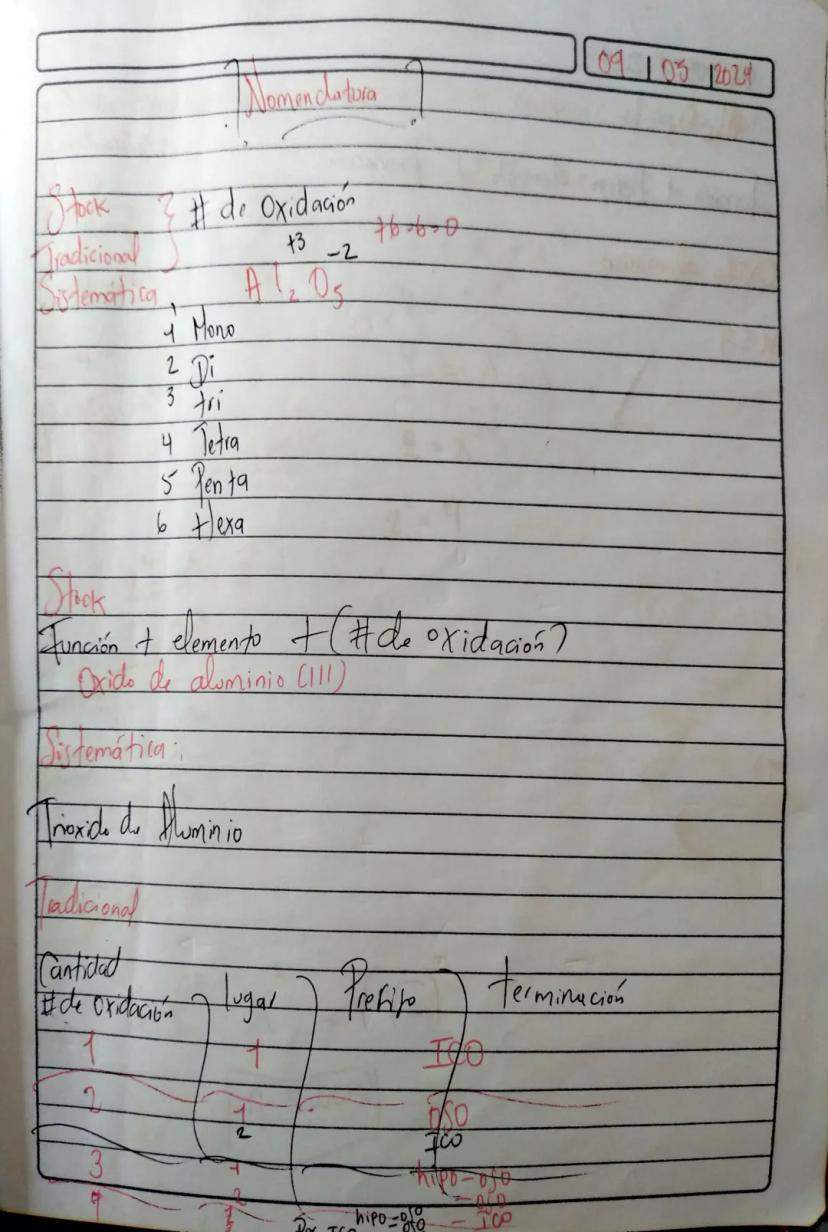 09 | 05 | 2024
Nomenclatura
Stock } # de Oxidación
Tradicional
+3 -2 +6-6=0
Sistemática Al2O3
1 Mono
2 Di
3 tri
4 Tetra
5 Penta
6 Hexa
Stock
función + elemento + (# de oxidación)
Oxido de aluminio (III)
Sistemática:
Trioxido de Aluminio
Tradicional
Cantidad
# de oxidación lugar Prefijo terminación
1 1 ICO
2 1 OSO
2 ICO
3 1 hipo-oso
2 - oso
3 - ICO
4 hipo-oso